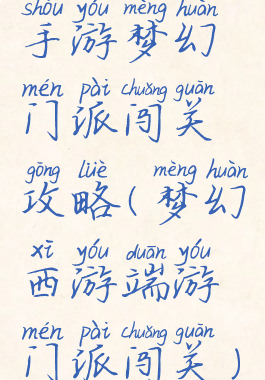 shǒu yóu mèng huàn
手游梦幻
mén pài chuǎng guān
门派闯关
gōng lüè mèng huàn
攻略(梦幻
xī yóu duān yóu
西游端游
mén pài chuǎng guān
门派闯关)